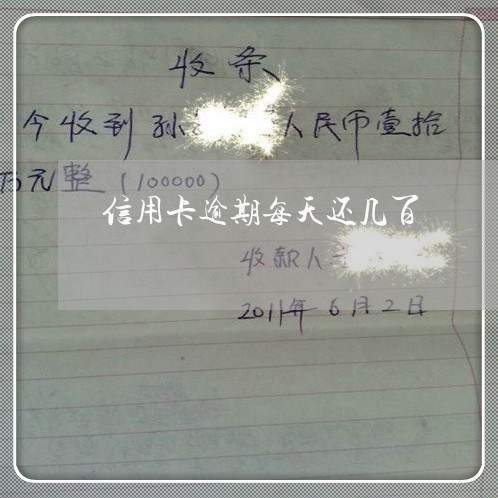 收条
今收到孙 人民币壹拾
万元整(100000)
信用卡逾期每天还几百
收款人
2011年6月2日